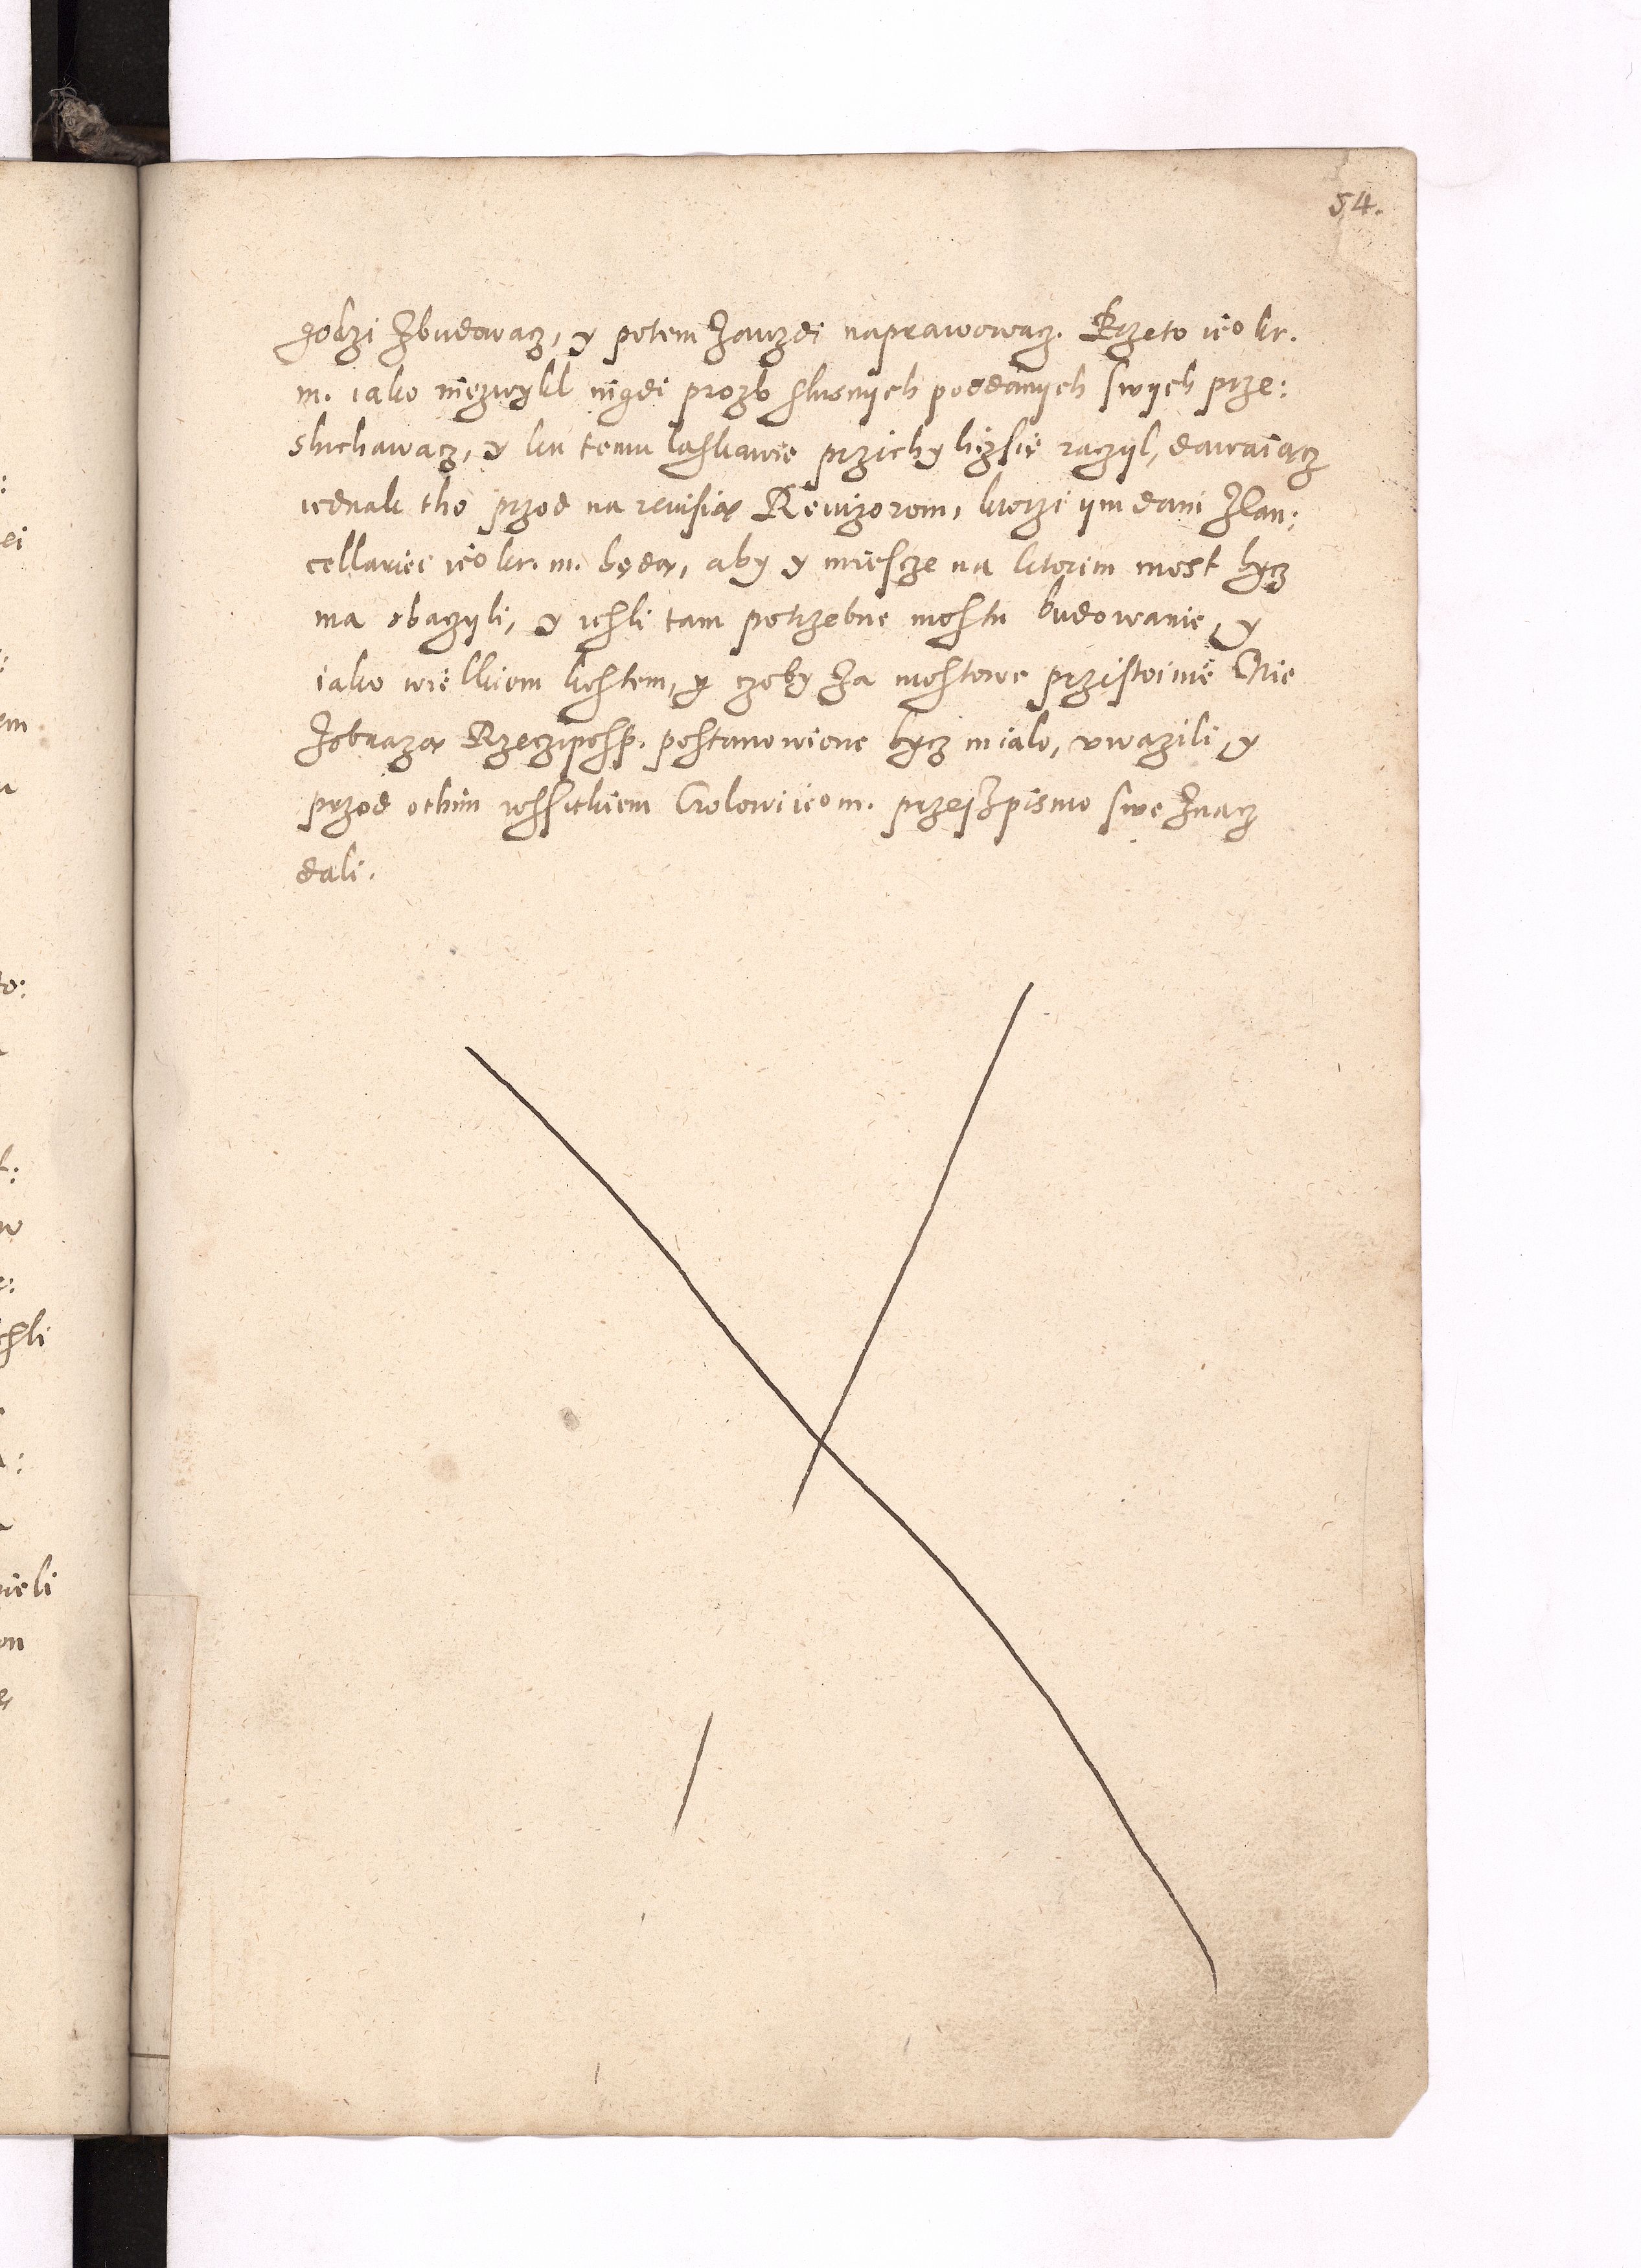 54.
gobzi Zbudowacz, y potem Zawzdi naprawowacz. Przeto ieo kr.
m. iako niezwykl nigdi prozb slusnych poddanych swych prze:
sluchawacz, y ku temu laskawie przichyliczsie raczyl, dawaiącz
iednak tho przod na reuisią Rewizorom, ktorzi ym dani Zkan:
cellariei ieo kr. m. będą, aby y miescze na ktorim most bycz
ma obaczyli, y iesli tam potrzebne mostu budowanie, y
iako wielkiem kostem, y czoby za mostowe przistoinie Nie
Zobrazą Rzecziposp. postanowione bycz mialo, vwazili, y
przod othim wssitkiem Crolowi ieo m. przesz pismo swe Znacz
dali.